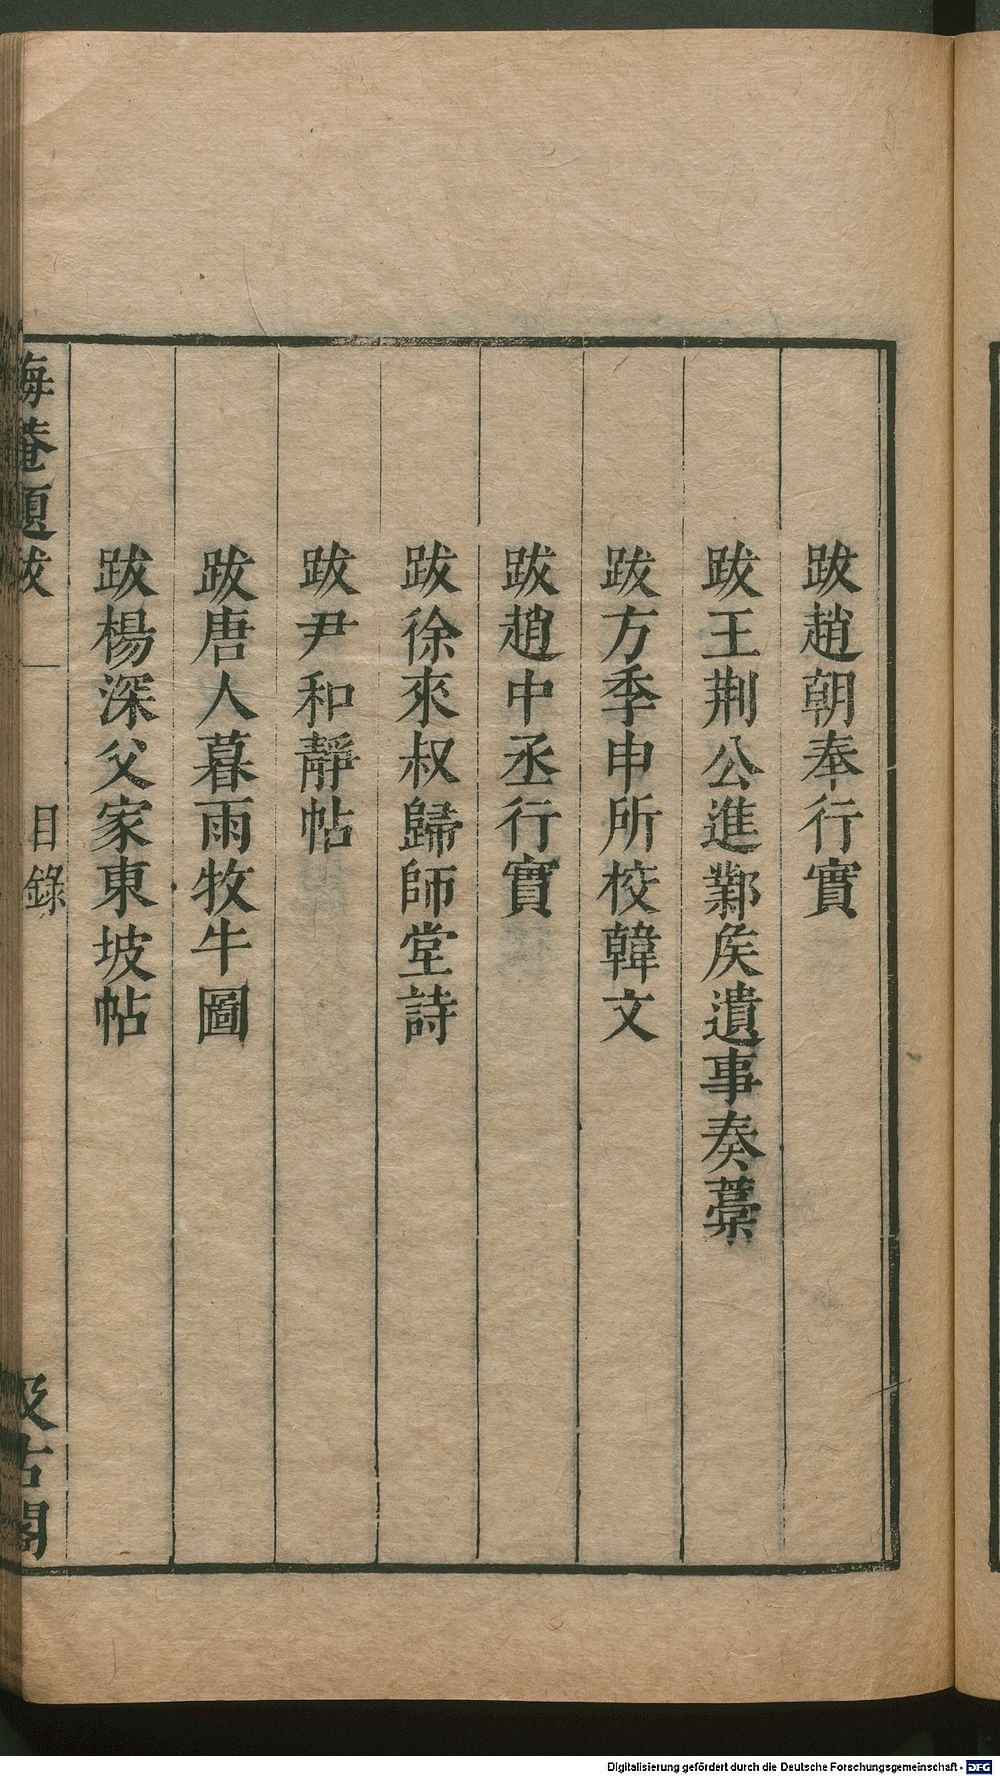 跋趙朝奉行實
跋王荆公進鄴矦遺事奏藁
跋方季申所校韓文
跋趙中丞行實
跋徐來叔歸師堂詩
跋尹和靜帖
跋唐人暮雨牧牛圖
跋楊深父家東坡帖
晦菴題跋
目錄
汲古閣
Digitalisierung gefördert durch die Deutsche Forschungsgemeinschaft - DFG